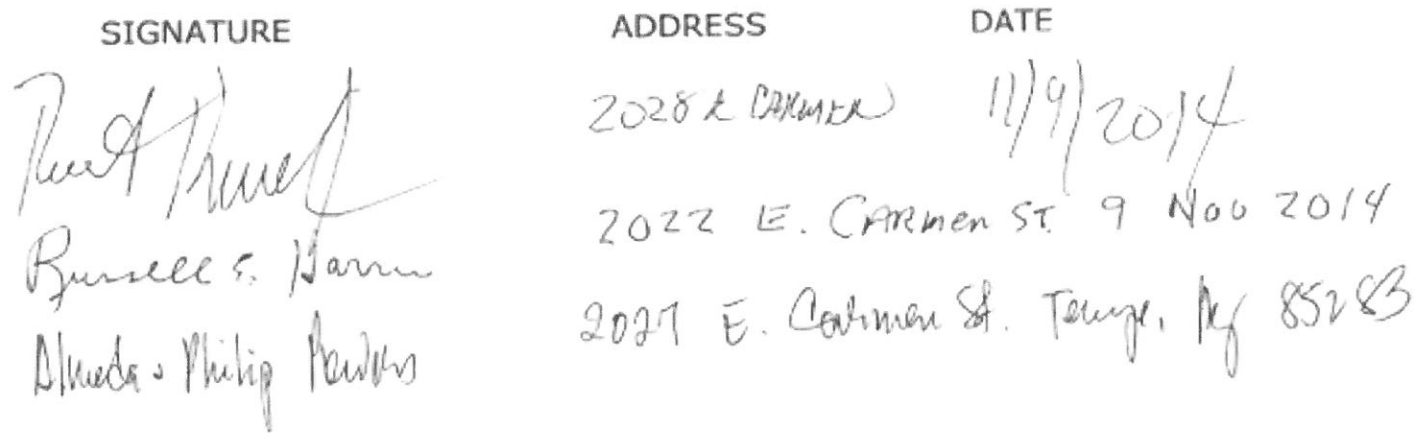 SIGNATURE ADDRESS DATE
2028 E CARMEN 11/9/2014
Russell S. 2022 E. CARMEN ST. 9 Nov 2014
Almeda & Philip 2027 E. Carmen St. Tempe, Az 85283